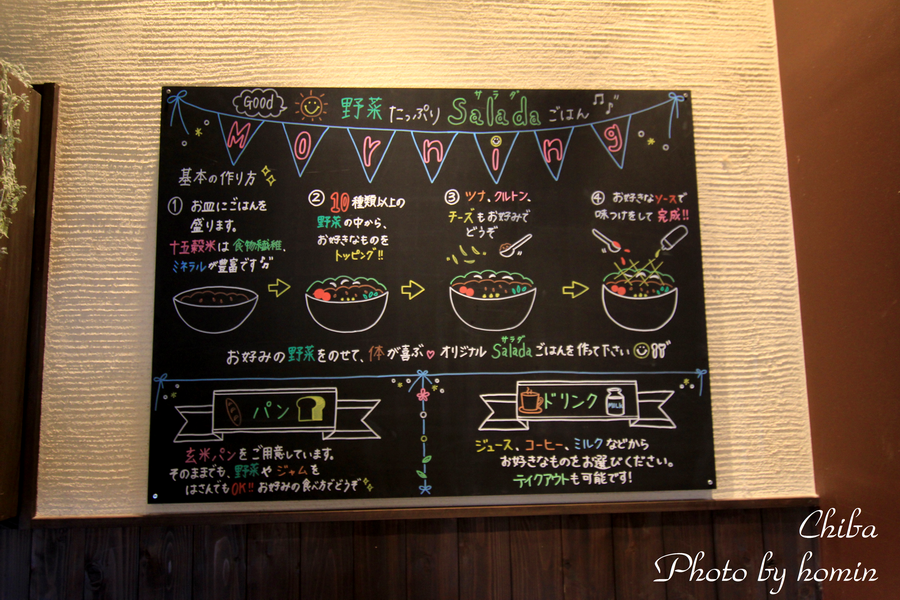 Good 野菜たっぷり Saladaごはん
サラダ
Morning
基本の作り方
① お皿にごはんを
盛ります。
十五穀米は食物繊維、
ミネラルが豊富です
② 10種類以上の
野菜の中から、
お好きなものを
トッピング!!
③ ツナ、クルトン、
チーズもお好みで
どうぞ
④ お好きなソースで
味つけをして完成!!
サラダ
お好みの野菜をのせて、体が喜ぶ♡オリジナルSaladaごはんを作って下さい
パン
玄米パンをご用意しています。
そのままでも、野菜やジャムを
はさんでもOK!! お好みの食べ方でどうぞ
ドリンク
MILK
ジュース、コーヒー、ミルクなどから
お好きなものをお選びください。
テイクアウトも可能です!
Chiba
Photo by homin